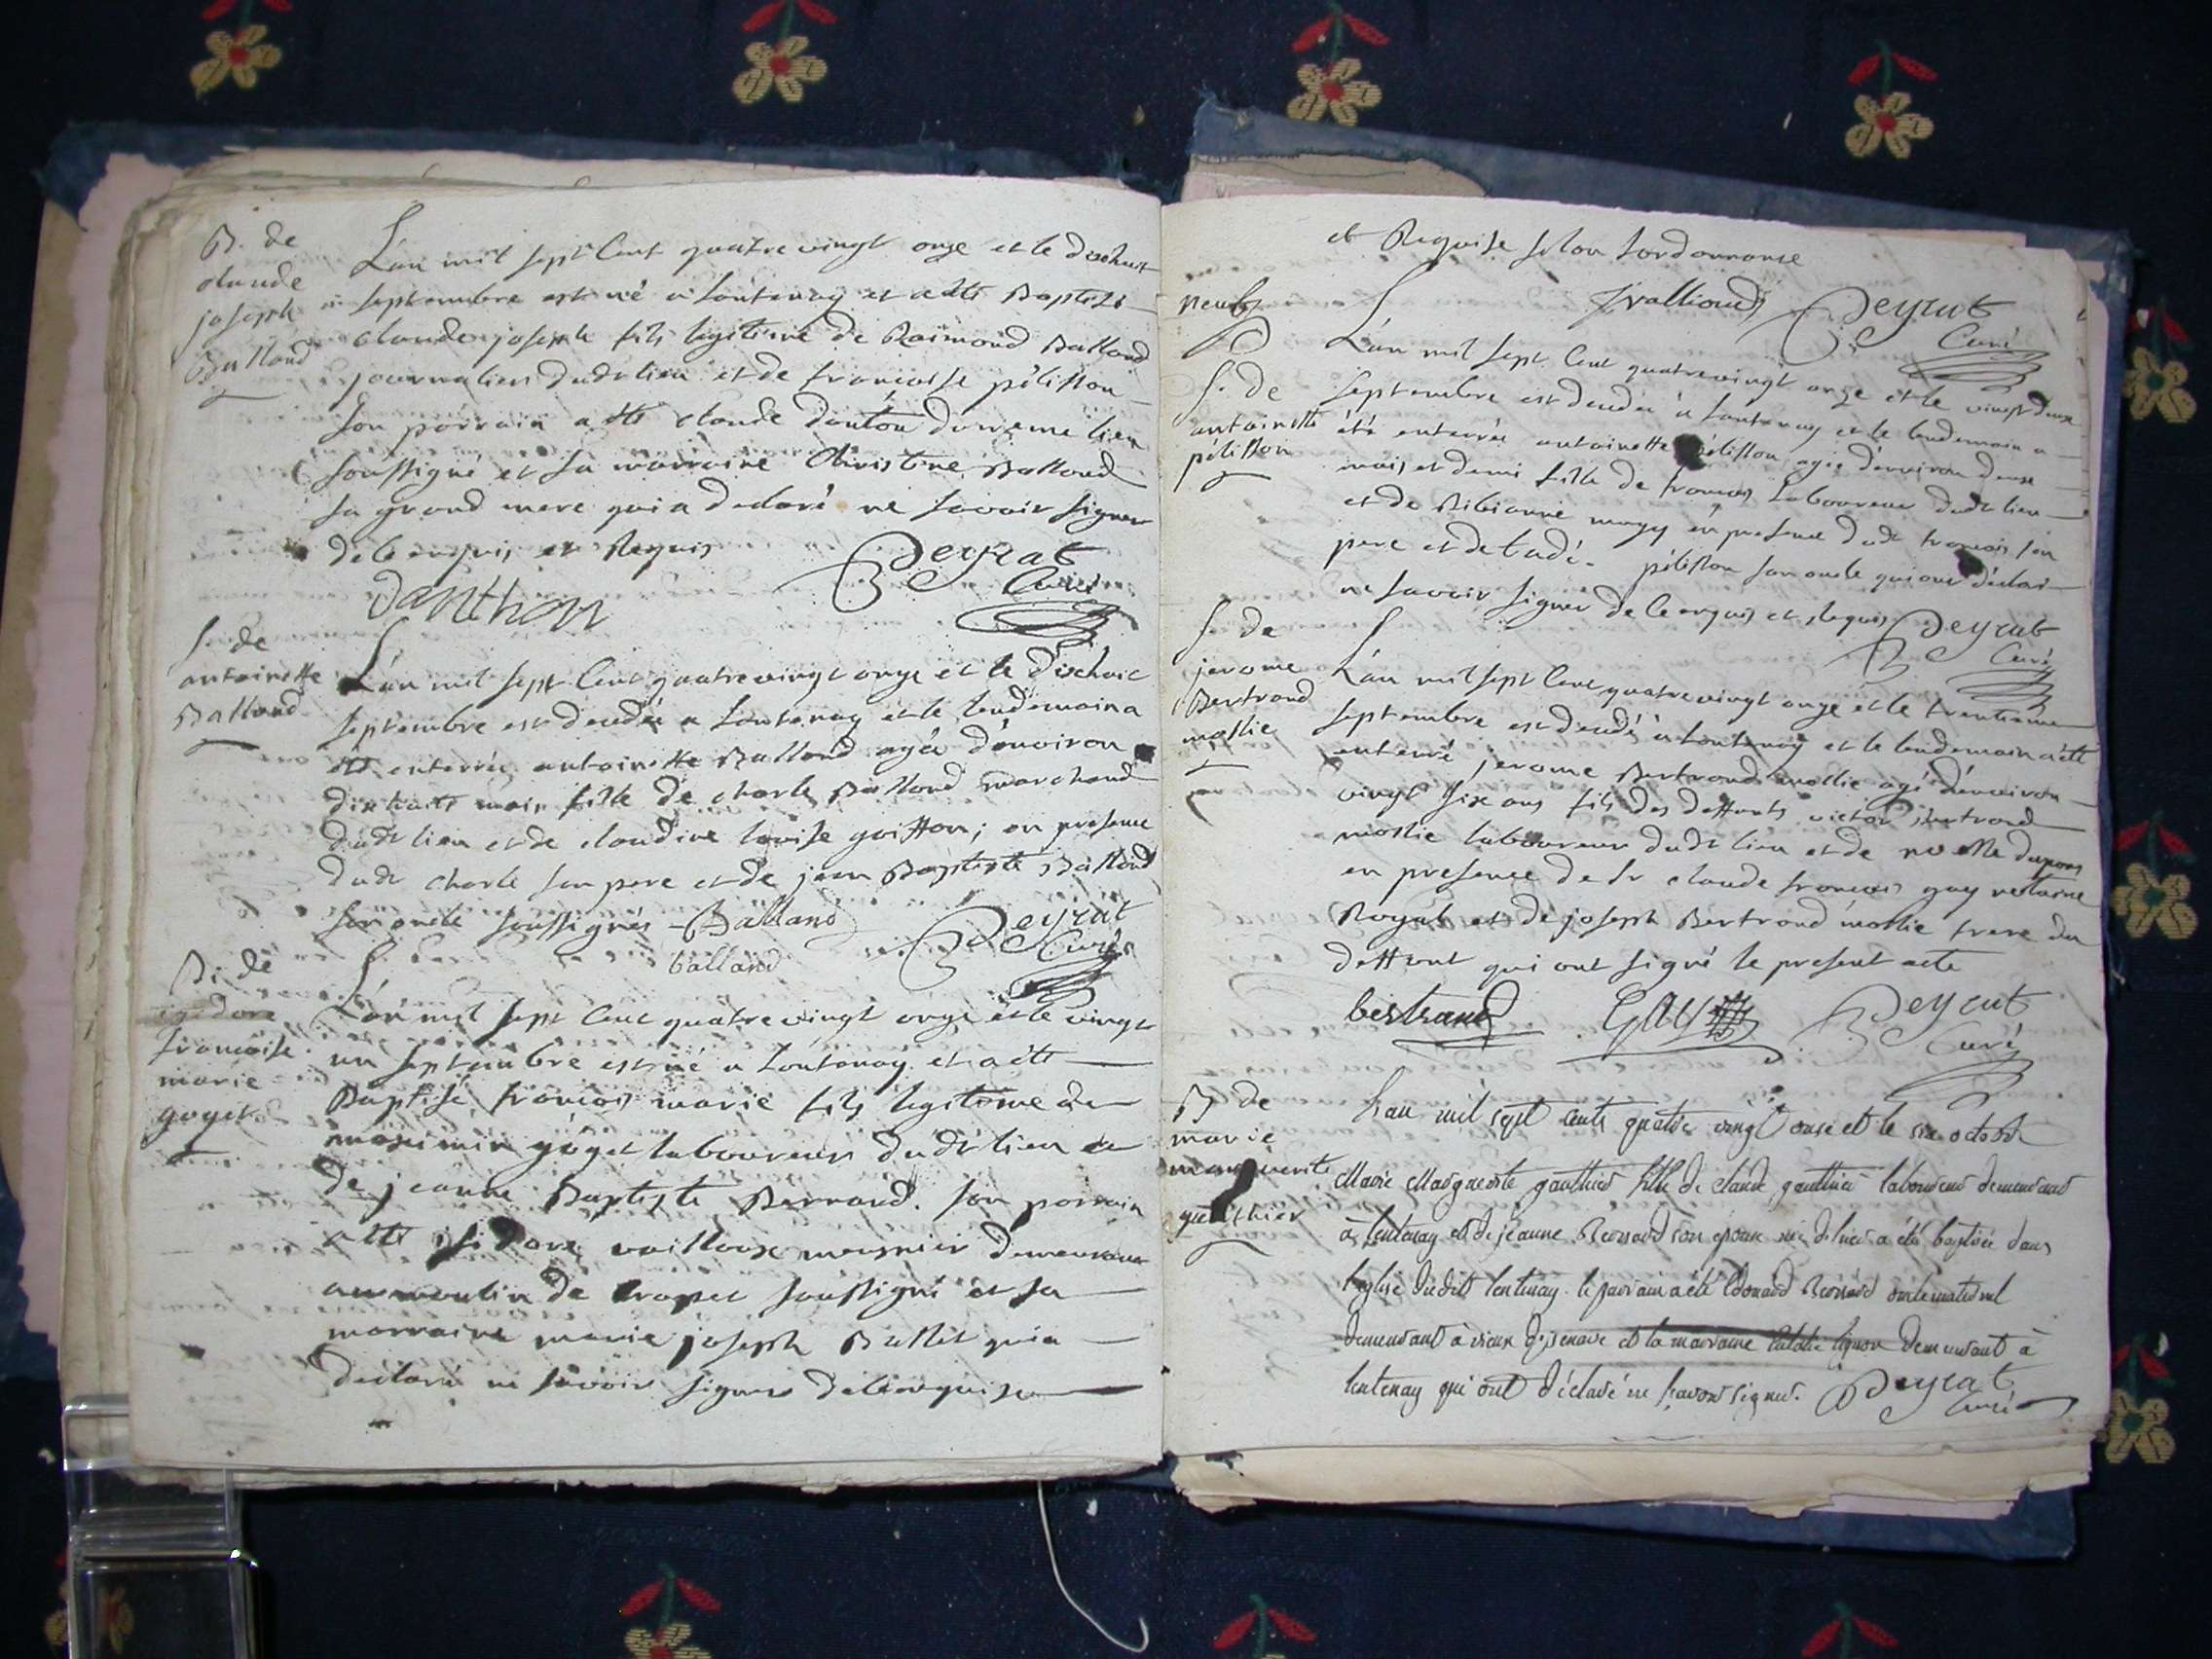 B. de
claude
joseph
Balland
L'an mil sept Cent quatre vingt onze et le dixhuit
septembre est né a Lantenay et a été Baptisé
claude joseph fils legitime de Raimond Balland
journalier dudt lieu et de francoise pélisson
son parrain a été claude danton du meme lieu
soussigné et sa marraine Christine Balland
sa grand mere qui a declaré ne savoir signer
de ce enquis et Requis
Peyrat
Curé
Danthon
S. de
antoinette
Balland
L'an mil sept Cent quatre vingt onze et le dixhuit
septembre est decedée a Lantenay et le lendemain a
été enterrée antoinette Balland agée d'environ
dixhuit mois fille de charle Balland marchand
dudt lieu et de claudine louise goiffon; en presence
dudt charle son pere et de jean Baptiste Balland
son oncle soussignés Balland
Peyrat
Curé
balland
B. de
isidore
francoise
marie
goyet
L'an mil sept Cent quatre vingt onze et le vingt
un septembre est né a Lantenay et a été
Baptisé francois marie fils legitime de
maximin goyet laboureur dudt lieu et
de jeanne Baptiste Bernard. son parrain
a été isidore vailloux meunier demeurant
au moulin de crapet soussigné et sa
marraine marie joseph Ballet qui a
declaré ne savoir signer de ce enquise
et Requise selon l'ordonnance
Jvallioud
Peyrat
Curé
neuf
S. de
antoinette
pélisson
L'an mil sept Cent quatrevingt onze et le vingt deux
septembre est decedée a Lantenay et le lendemain a
été enterrée antoinette pélisson agée d'environ deux
mois et demi fille de francois laboureur dudt lieu
et de Bibianne en presence dudt francois son
pere et de pélisson son oncle qui ont déclaré
ne savoir signer de ce enquis et Requis
Peyrat
Curé
S. de
jerome
Bertrand
mollie
L'an mil sept Cent quatre vingt onze et le trentieme
septembre est decedé à Lantenay et le lendemain a été
enterré jerome Bertrand mollie agé d'environ
vingt six ans fils des deffunts victor Bertrand
mollie laboureur dudt lieu et de
en presence de sr claude francois gay notaire
Royal et de joseph Bertrand mollie frere du
deffunt qui ont signé le present acte
bertrand
GAY
Peyrat
Curé
B de
marie
marguerite
gauthier
L'an mil sept cents quatre vingt onze et le six octobre
Marie Marguerite gauthier fille de claude gauthier laboureur demeurant
à lentenay et de jeanne Bernard son epouse née a été baptisée dans
l'eglise dudit lentenay le parrain a été Edouard Bernard oncle maternel
demeurant à vieux d'izenave et la marraine demeurant à
lentenay qui ont déclaré ne sçavoir signer.
Peyrat
Curé